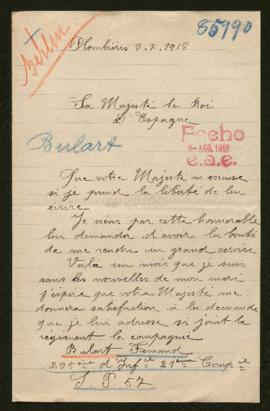 85990
Berlin
Plombières 8.7.1918
Sa Majesté le Roi
d'Espagne
Bulart
Fecho
9-AGO.1918
e.a.e.
Que votre Majesté m'excuse
si je prend la liberté de lui
écrire
Je viens par cette honorable
lui demander d'avoir la bonté
de me rendre un grand service
Voilà un mois que je suis
sans les nouvelles de mon mari
j'espère que votre Majesté me
donnera satisfaction à la demande
que je lui adresse si joint le
régiment la compagnie
Bulart Fernand
295ème d'Infie 21ème Compie
S P 57